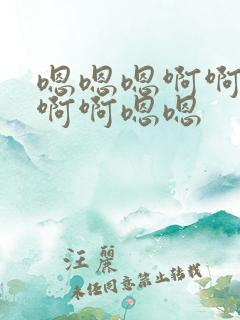 嗯嗯嗯啊啊
啊啊嗯嗯
汪麗
未经同意禁止转载